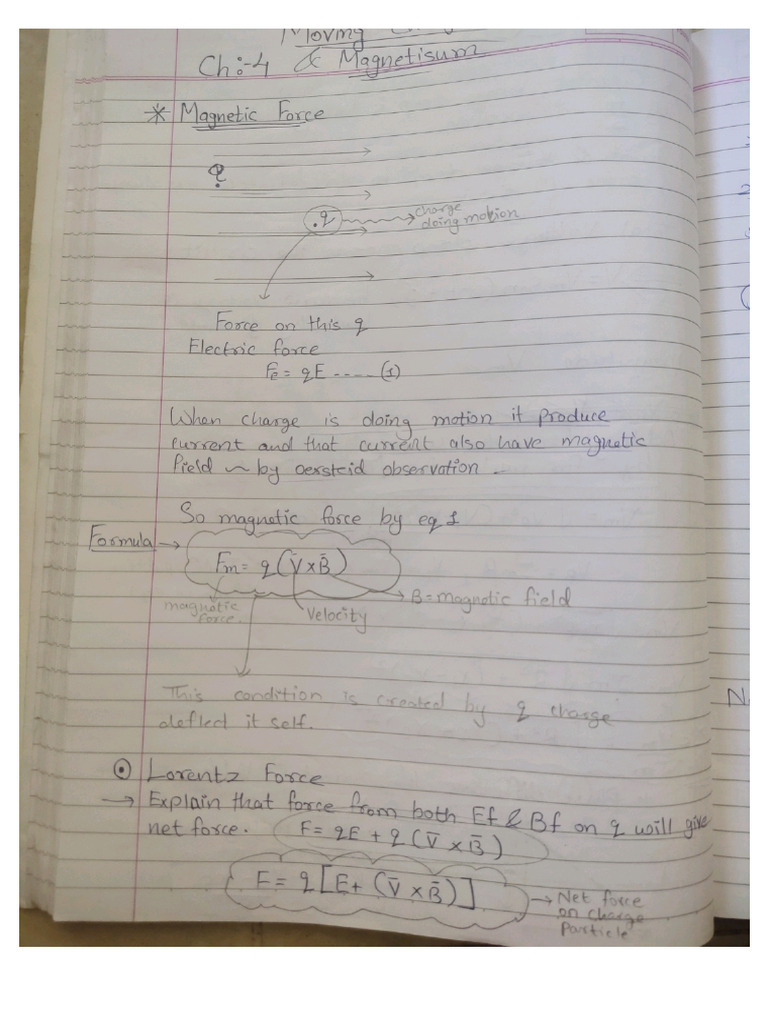 Moving
Ch:-4 & Magnetisum
* Magnetic Force
q
.q charge
doing motion
Force on this q
Electric force
Fe = qE ----- (1)
When charge is doing motion it produce
current and that current also have magnetic
field ~ by oersteid observation -
So magnetic force by eq 1
Formula →
Fm = q (V̄ × B̄)
magnatic
force.
Velocity
B = magnetic field
This condition is created by q charge
deflect it self.
Lorentz Force
→ Explain that force from both Ef & Bf on q will give
net force. F = qE + q (V̄ × B̄)
F = q [E + (V̄ × B̄)]
→ Net force
on charge
Particle
N